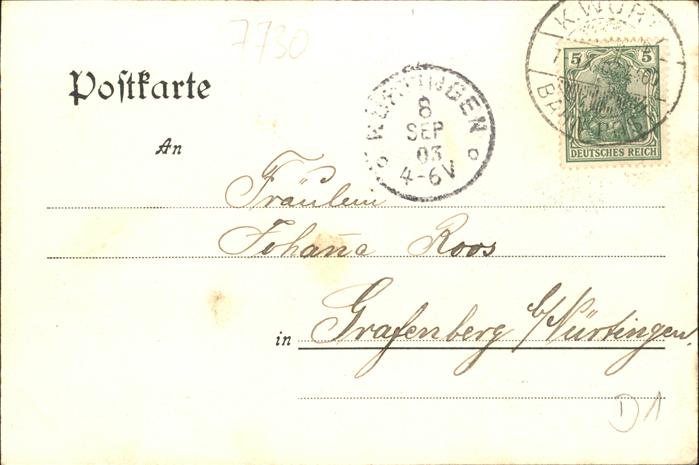 7730
Postkarte
K.WÜR
5 5
DEUTSCHES REICH
NÜRTINGEN
8
SEP
03
4-6V
An
Fräulein
Johanna Roos
in Grafenberg b/Nürtingen.
D1